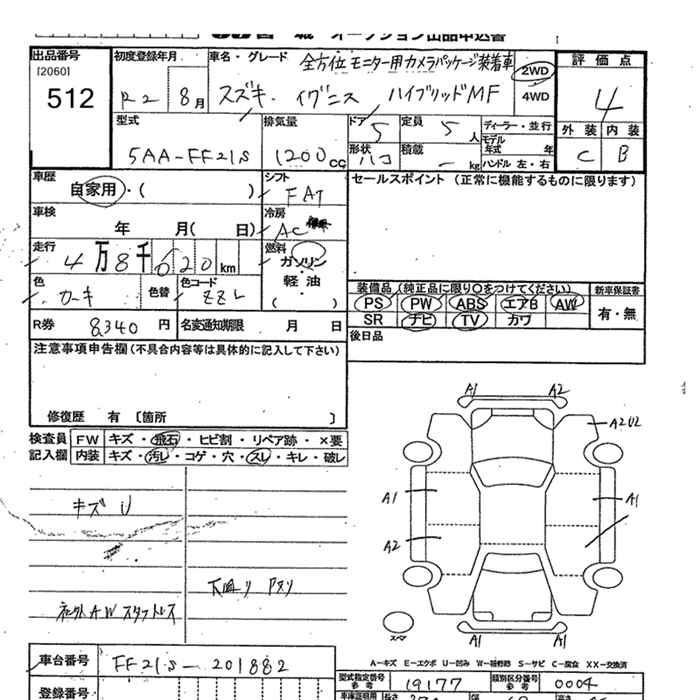 オークション出品申込書
出品番号 [2060] 512
初度登録年月 R2 8月
車名・グレード 全方位モニター用カメラパッケージ装着車
スズキ イグニス ハイブリッドMF
2WD
4WD
評価点 4
外装 内装
C B
型式 5AA-FF21S
排気量 1200 CC
ドア 5
形状 ハコ
定員 5 人
積載 - kg
ディーラー・並行
モデル年式 年
ハンドル 左・右
車歴 自家用・( )
シフト FAT
セールスポイント (正常に機能するものに限ります)
車検 年 月( 日)
冷房 AC
走行 4万8千620km
燃料 ガソリン・軽油 ( )
色 カーキ 色替
色コード ZZL
装備品 (純正品に限り○をつけてください)
新車保証書
PS PW ABS エアB AW
有・無
SR ナビ TV カワ
R券 8340 円
名変通知期限 月 日
後日品
注意事項申告欄 (不具合内容等は具体的に記入して下さい)
修復歴 有 〔箇所 〕
検査員記入欄
FW キズ・飛石・ヒビ割・リペア跡・×要
内装 キズ・汚し・コゲ・穴・スレ・キレ・破レ
キズ U
下回り Pスリ
社外AW スタッドレス
A1 A2
A2U2
A1 A1
A2
スペア
A1 A1
A-キズ E-エクボ U-凹み W-補修跡 S-サビ C-腐食 XX-交換済
車台番号 FF21S-201882
登録番号
型式指定番号 参考 19177
類別区分番号 参考 0004